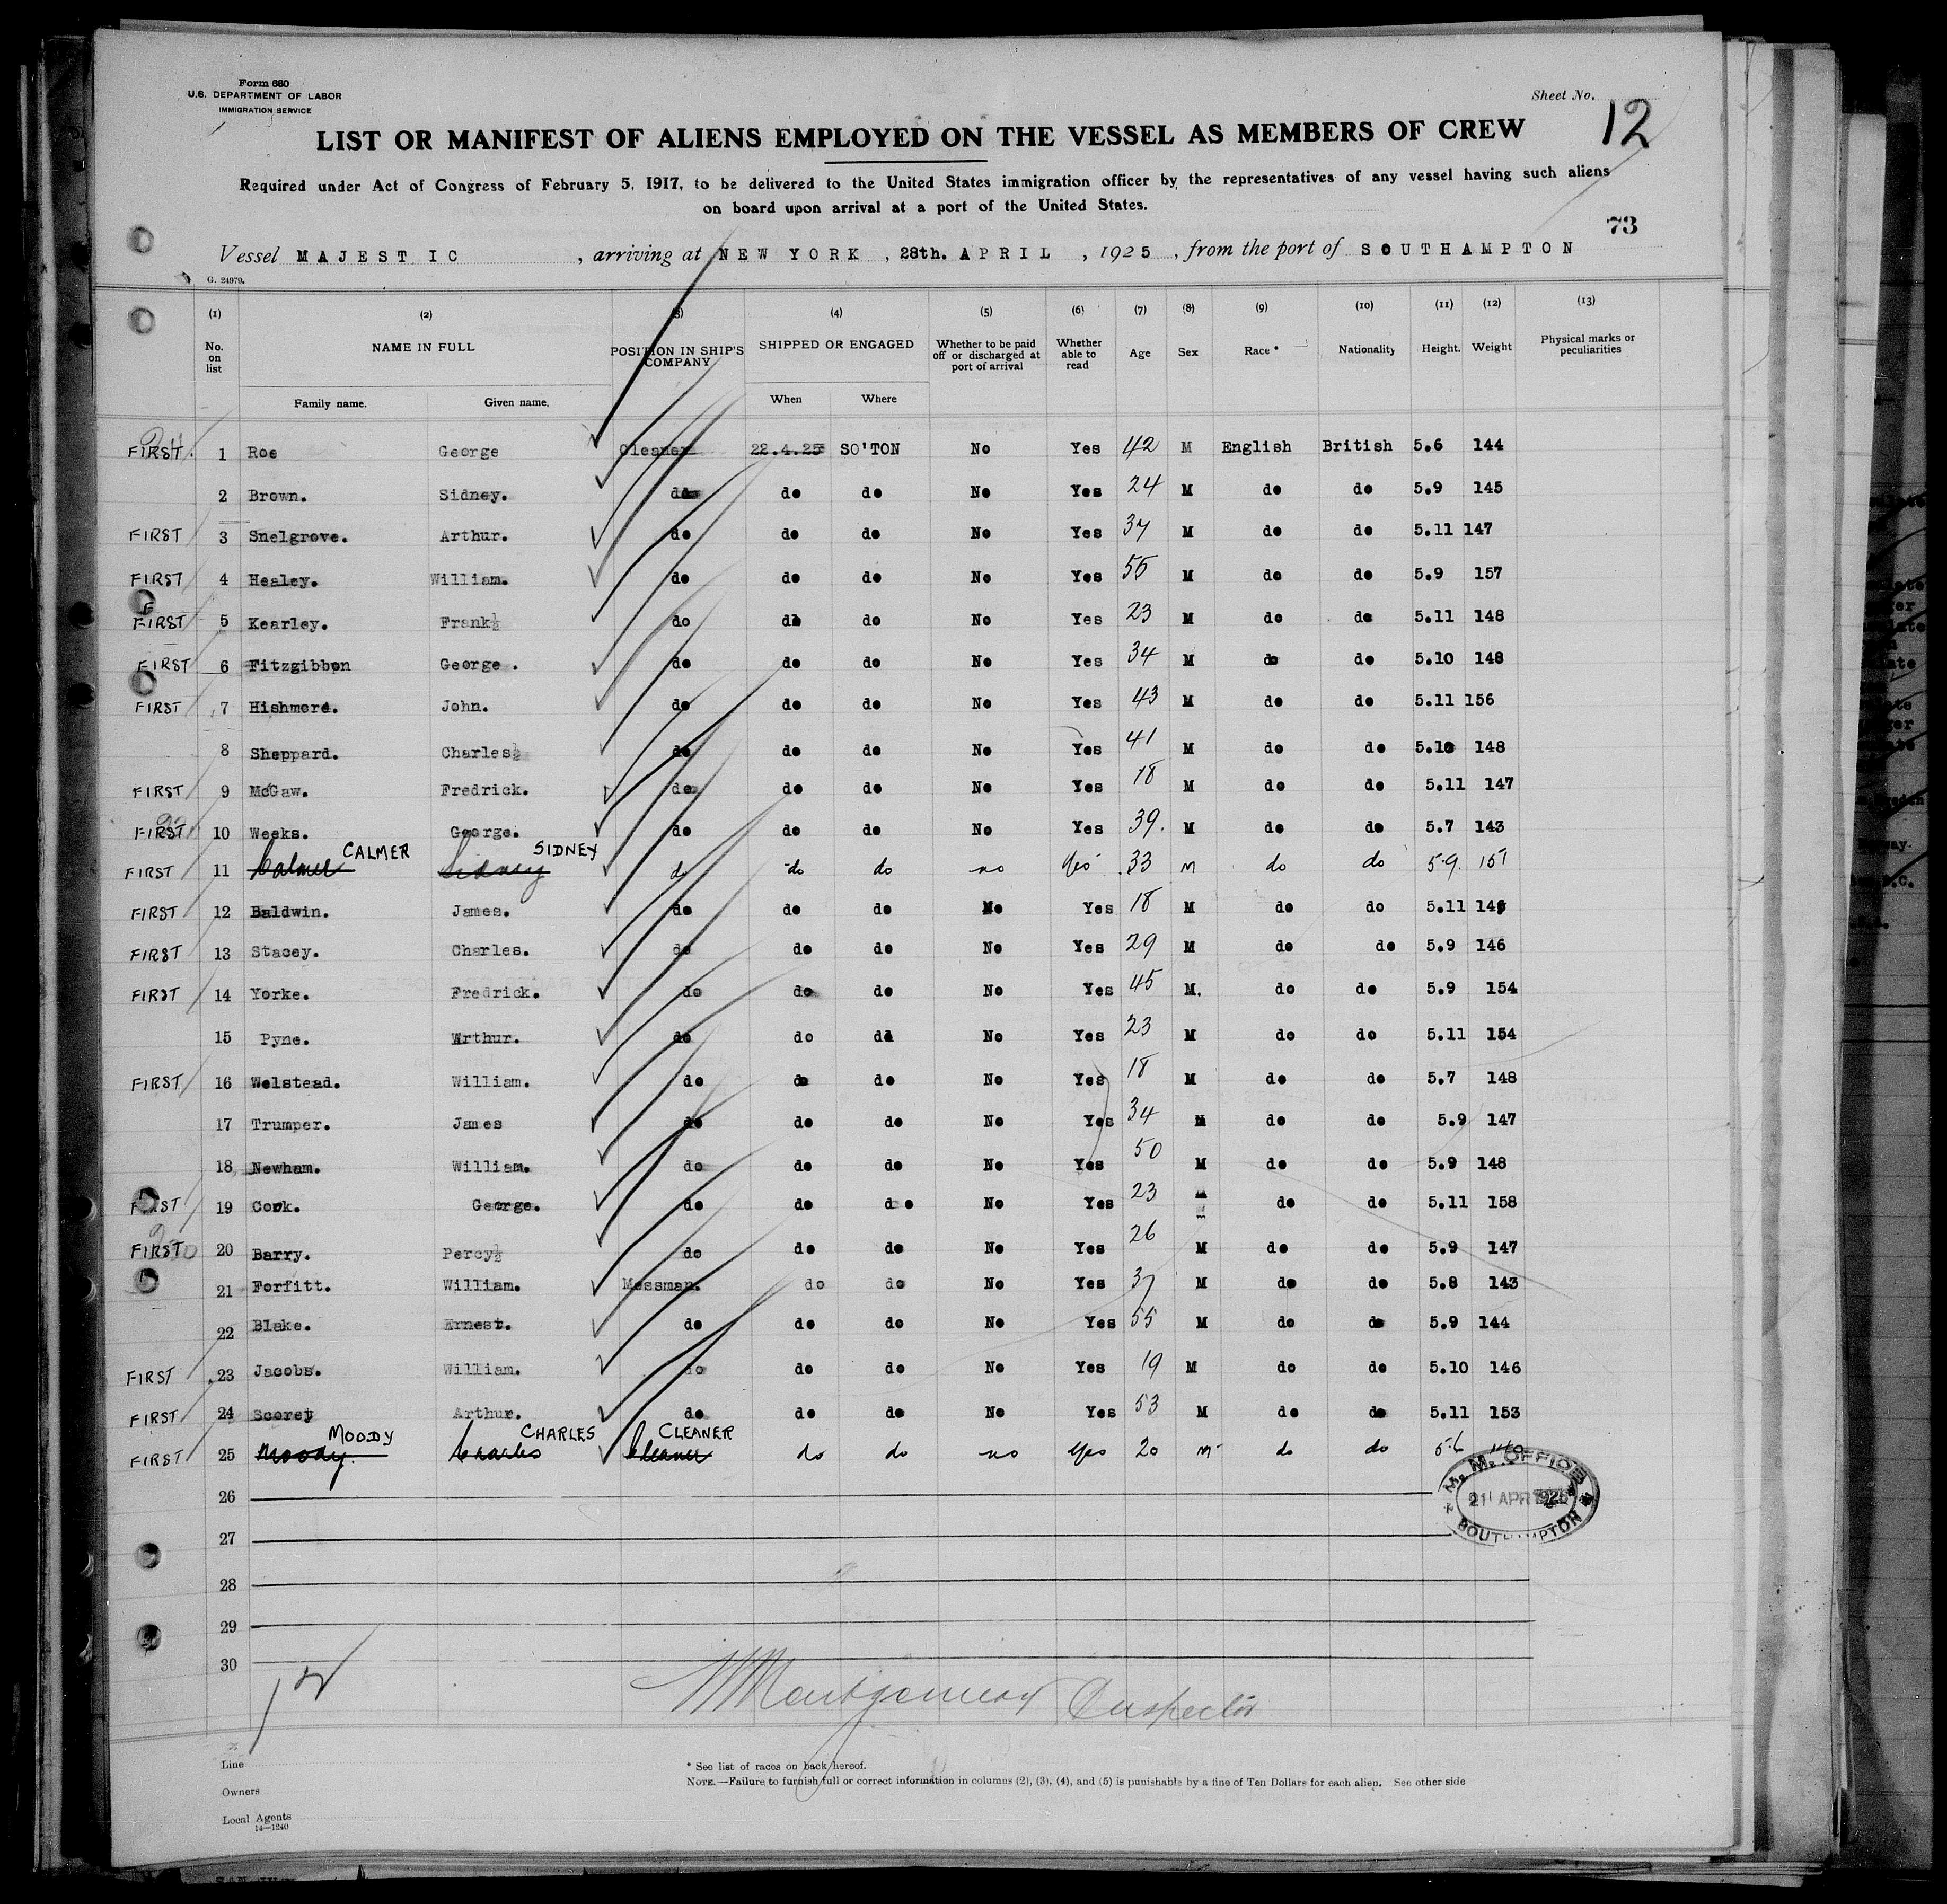 Form 680
U.S. DEPARTMENT OF LABOR
IMMIGRATION SERVICE
Sheet No. 12
LIST OR MANIFEST OF ALIENS EMPLOYED ON THE VESSEL AS MEMBERS OF CREW
Required under Act of Congress of February 5, 1917, to be delivered to the United States immigration officer by the representatives of any vessel having such aliens
on board upon arrival at a port of the United States.
73
Vessel MAJESTIC , arriving at NEW YORK , 28th. APRIL , 1925 , from the port of SOUTHAMPTON
G. 24979.
(1) (2) (3) (4) (5) (6) (7) (8) (9) (10) (11) (12) (13)
No. on list NAME IN FULL POSITION IN SHIP'S COMPANY SHIPPED OR ENGAGED Whether to be paid off or discharged at port of arrival Whether able to read Age Sex Race * Nationality Height. Weight Physical marks or peculiarities
Family name. Given name. When Where
FIRST. 1 Roe George Cleaner 22.4.25 SO'TON No Yes 42 M English British 5.6 144
2 Brown. Sidney. do do do No Yes 24 M do do 5.9 145
FIRST 3 Snelgrove. Arthur. do do do No Yes 37 M do do 5.11 147
FIRST 4 Healey. William. do do do No Yes 55 M do do 5.9 157
FIRST 5 Kearley. Frank½ do do do No Yes 23 M do do 5.11 148
FIRST 6 Fitzgibbon George . do do do No Yes 34 M do do 5.10 148
FIRST 7 Hishmore. John. do do do No Yes 43 M do do 5.11 156
8 Sheppard. Charles½ do do do No Yes 41 M do do 5.10 148
FIRST 9 McGaw. Fredrick. do do do No Yes 18 M do do 5.11 147
FIRST 10 Weeks. George. do do do No Yes 39. M do do 5.7 143
CALMER SIDNEY
FIRST 11 Calmer Sidney do do do no Yes 33 M do do 5.9. 151
FIRST 12 Baldwin. James. do do do No Yes 18 M do do 5.11
FIRST 13 Stacey. Charles. do do do No Yes 29 M do do 5.9 146
FIRST 14 Yorke. Fredrick. do do do No Yes 45 M. do do 5.9 154
15 Pyne. Arthur. do do do No Yes 23 M do do 5.11 154
FIRST 16 Welstead. William. do do do No Yes 18 M do do 5.7 148
17 Trumper. James do do do No Yes 34 M do do 5.9 147
18 Newham. William. do do do No Yes 50 M do do 5.9 148
FIRST 19 Cook. George. do do do No Yes 23 M do do 5.11 158
FIRST 20 Barry. Percy½ do do do No Yes 26 M do do 5.9 147
21 Forfitt. William. Messman. do do No Yes 37 M do do 5.8 143
22 Blake. Ernest. do do do No Yes 55 M do do 5.9 144
FIRST 23 Jacobs. William. do do do No Yes 19 M do do 5.10 146
FIRST 24 Scorey Arthur. do do do No Yes 53 M do do 5.11 153
MOODY CHARLES CLEANER
FIRST 25 Moody. Charles Cleaner do do no Yes 20 M do do 5.6
26
27
28
29
30
M. M. OFFICE
21 APR 1925
SOUTHAMPTON
Montgomery Inspector
Line
Owners
Local Agents
14—1240
* See list of races on back hereof.
NOTE.—Failure to furnish full or correct information in columns (2), (3), (4), and (5) is punishable by a fine of Ten Dollars for each alien. See other side